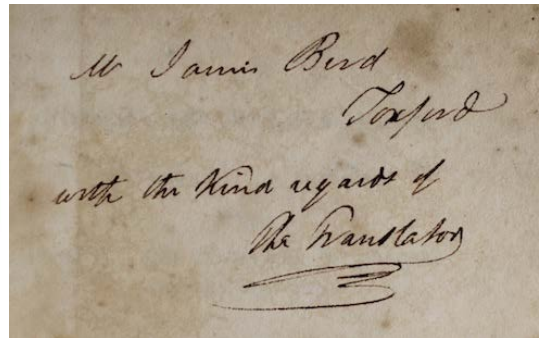 Mr James Bird
Yoxford
with the Kind regards of
The Translator